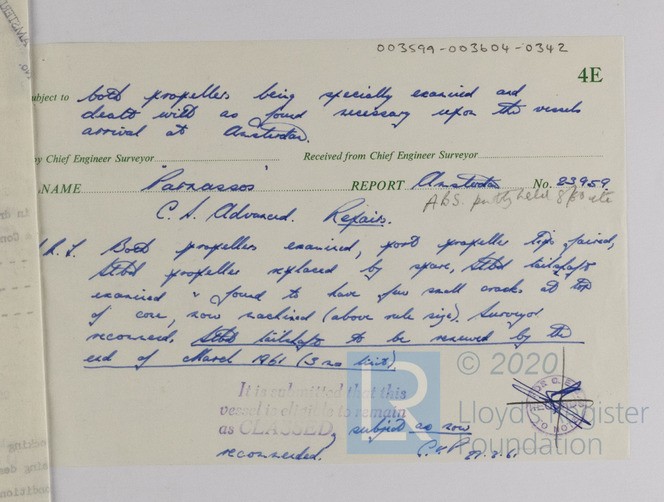 003599-003604-0342
4E
ubject to both propellers being specially examined and
dealt with as found necessary upon the vessels
arrival at Amsterdam.
by Chief Engineer Surveyor Received from Chief Engineer Surveyor
NAME "Parnassos" REPORT Amsterdam No. 23959.
C. S. Advanced. Repairs.
ABS. partly held
Both propellers examined, port propeller tips faired,
stbd propeller replaced by spare, stbd tailshaft
examined & found to have few small cracks at top
of cone, now machined (above rule size). Surveyor
recommends stbd tailshaft to be renewed by the
end of March 1961 (3 mo limit)
It is submitted that this
vessel is eligible to remain
as CLASSED, subject as now
recommended.
27.2.61
© 2020
LR
Lloyd's Register
Foundation